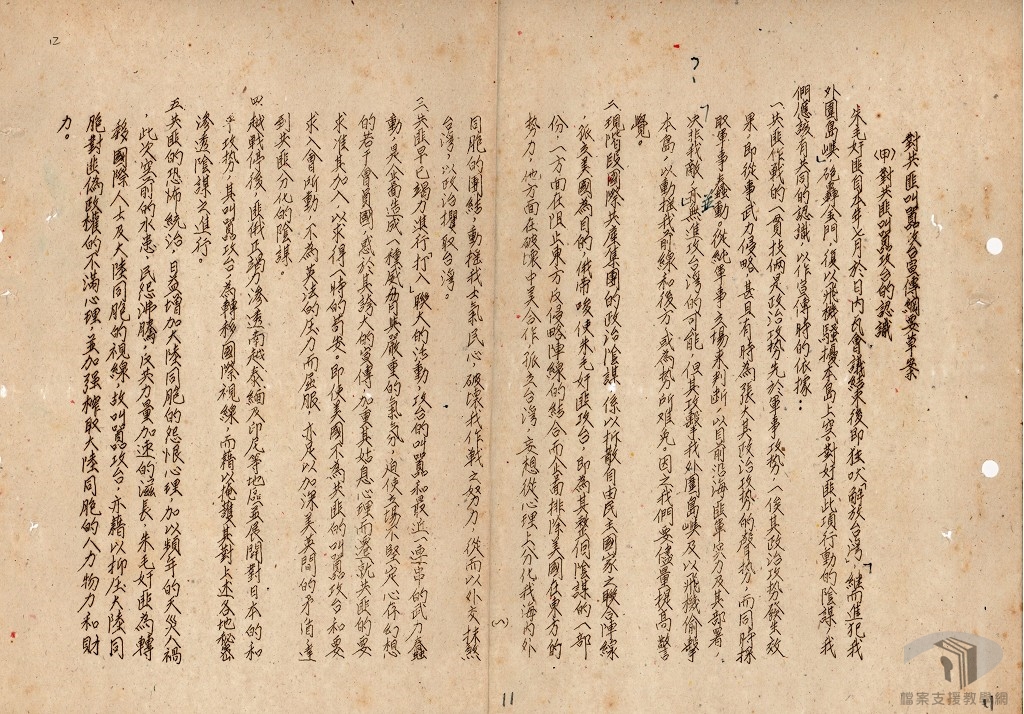 對共匪叫囂攻台宣傳綱要草案
(甲)對共匪叫囂攻台的認識
朱毛奸匪自本年七月於日內瓦會議結束後即狂吹「解放台灣」繼而進犯我
外圍島嶼，砲轟金門，復以飛機騷擾本島上空。對奸匪此項行動的陰謀，我
們應該有共同的認識，以作宣傳時的依據：
一、共匪作戰的一貫技倆是政治攻勢先於軍事攻勢，後其政治攻勢發生效
果，即從事武力侵略，甚且有時為張大其政治攻勢的聲勢，而同時採
取軍事蠢動。從純軍事立場來判斷，以目前沿海匪軍實力及其部署，
決非我敵，並無進攻台灣的可能，但其攻擊我外圍島嶼及以飛機偷擊
本島，以動搖我前線和後方，或為勢所難免。因之我們要儘量提高警
覺。
二、現階段國際共產集團的政治陰謀，係以拆散自由民主國家之聯合陣線
，孤立美國為目的，俄帝唆使朱毛奸匪攻台，即為其整個陰謀的一部
份，一方面在阻止東方反侵略陣線的結合而企圖排除美國在東方的
勢力，他方面在破壞中美合作，孤立台灣，妄想從心理上分化我海內外
(一)
11
同胞的團結，動搖我士氣民心，破壞我作戰之努力，從而以外交抹煞
台灣，以政治攫取台灣。
三、共匪早已竭力進行「打」「聯」入的活動，攻台的叫囂和最近一連串的武力蠢
動，是企圖造成一種威脅與嚴重的氣氛，迫使立場不堅定、心存幻想
的若干會員國，惑於其誇大的宣傳，加重其姑息心理，而遷就共匪的要
求，准其加入，以求得一時的苟安。即使美國不為共匪的叫囂攻台和要
求入會所動，不為英法的壓力而屈服，亦足以加深美英間的矛盾，達
到共匪分化的陰謀。
四、越戰停後，匪俄正竭力滲透南越泰緬及印尼等地區，並展開對日本的和
平攻勢，其叫囂攻台，為轉移國際視線，而藉以掩護其對上述各地秘密
滲透陰謀之進行。
五、共匪的恐怖統治，日益增加大陸同胞的怨恨心理，加以頻年的天災人禍
，此次空前的水患，民怨沸騰，反共力量加速的滋長，朱毛奸匪為轉
移國際人士及大陸同胞的視線，故叫囂攻台，亦藉以抑壓大陸同
胞對匪偽政權的不滿心理，並加強榨取大陸同胞的人力物力和財
力。
12
檔案支援教學網